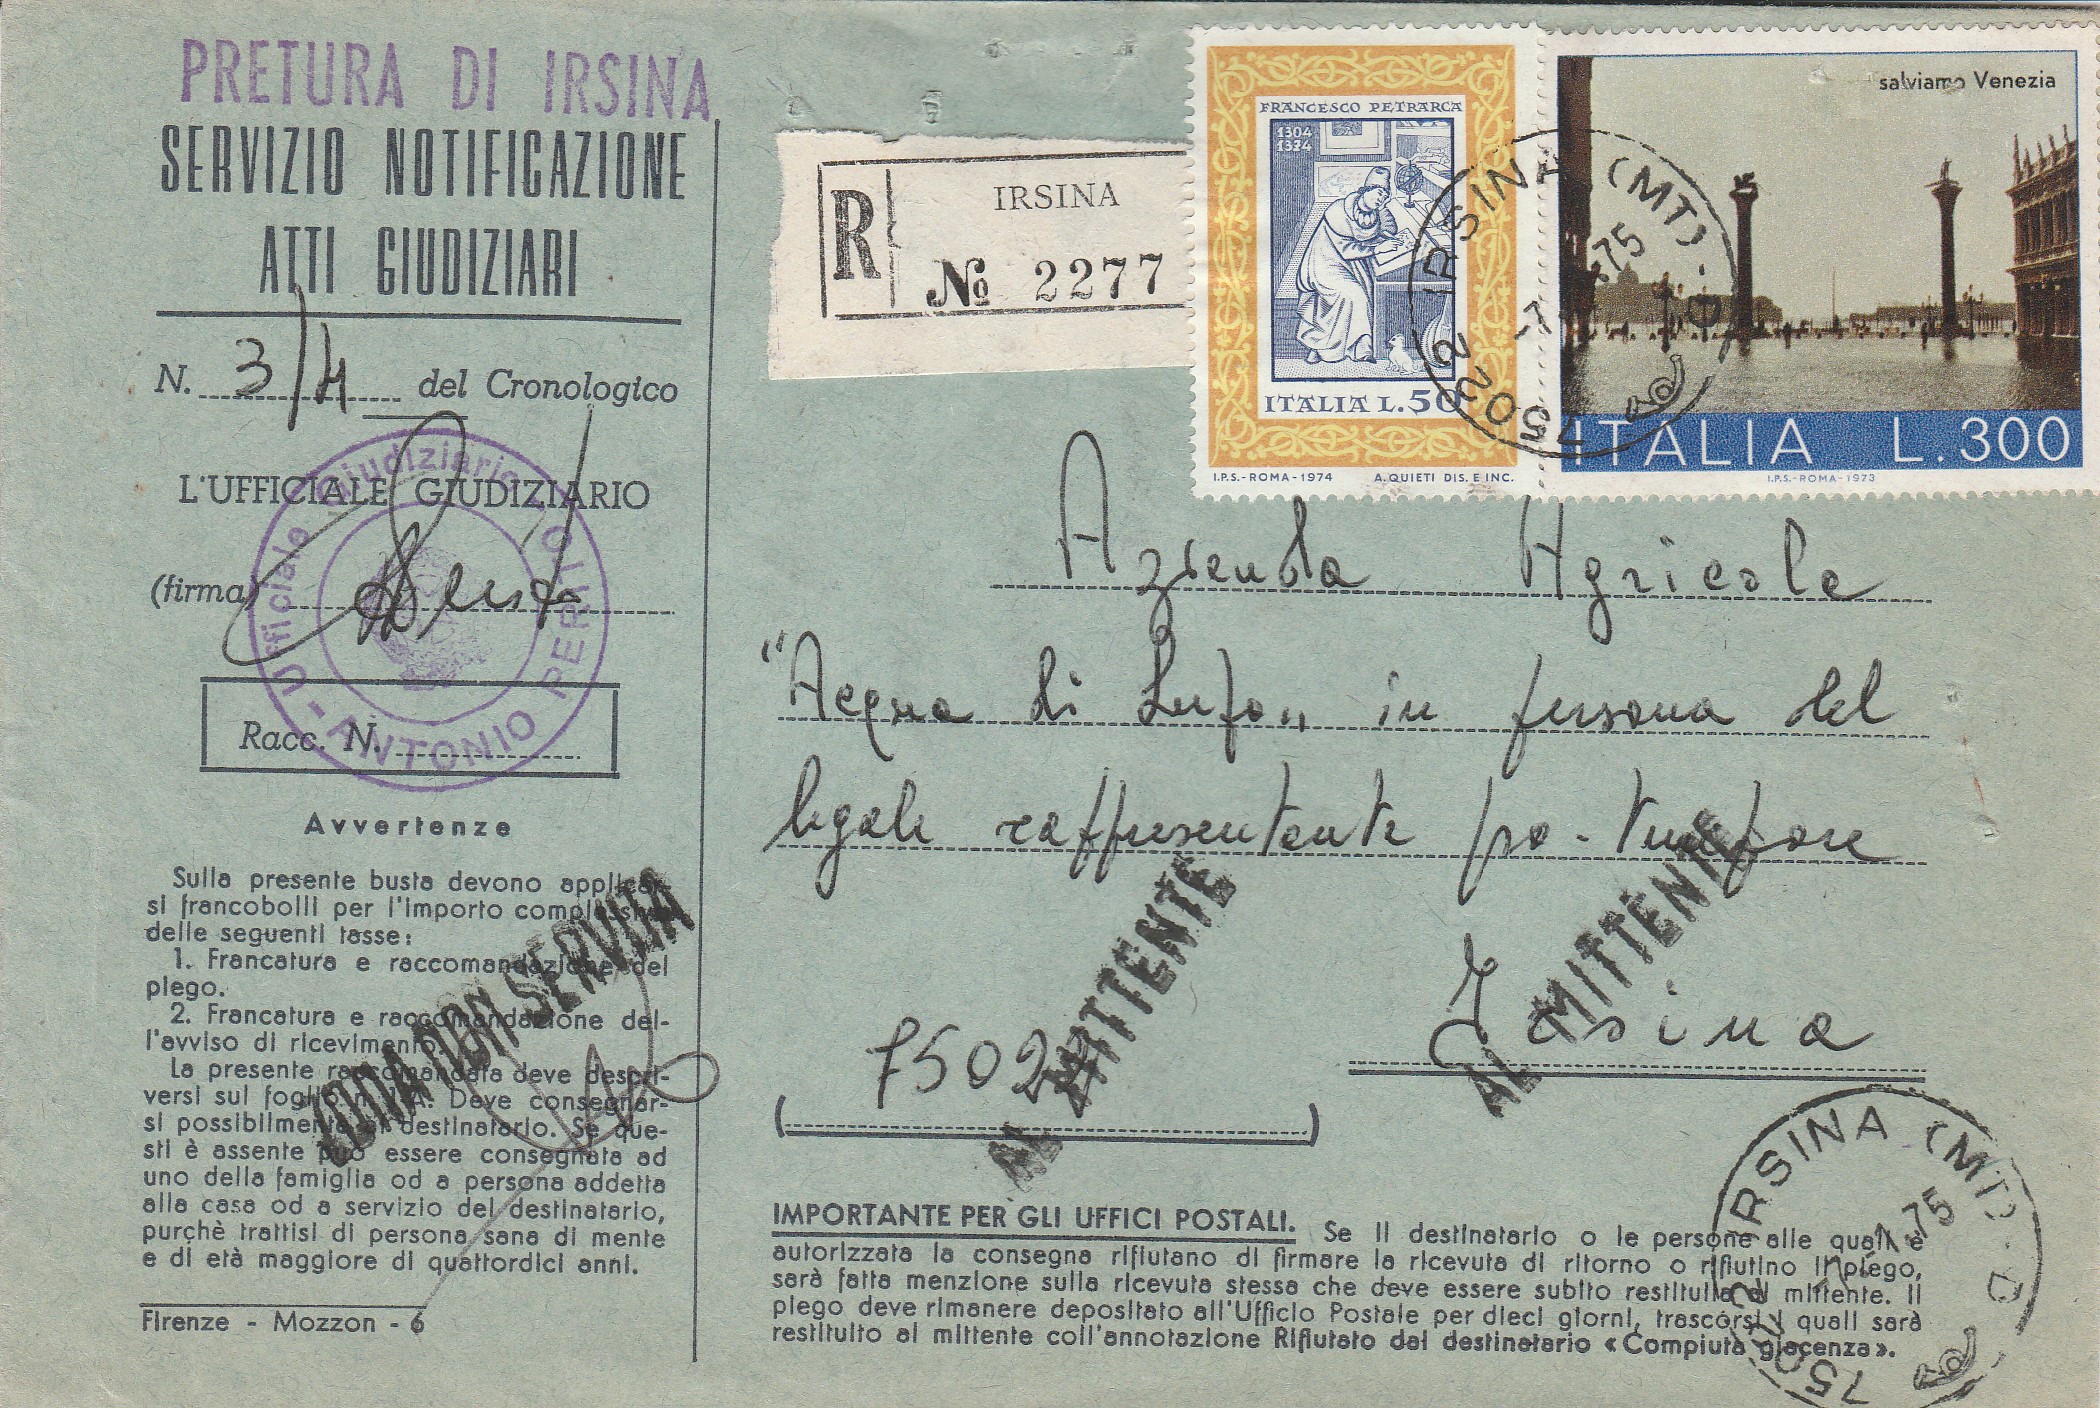 PRETURA DI IRSINA
SERVIZIO NOTIFICAZIONE
ATTI GIUDIZIARI
N. 3/4 del Cronologico
L'UFFICIALE GIUDIZIARIO
(firma)
Ufficiale Giudiziario
- ANTONIO PERITO
Racc. N.
Avvertenze
Sulla presente busta devono applicar-
si francobolli per l'importo complessivo
delle seguenti tasse:
1. Francatura e raccomandazione del
plego.
2. Francatura e raccomandazione del-
l'avviso di ricevimento.
La presente raccomandata deve descri-
versi sul foglio n. 1-A. Deve consegnar-
si possibilmente al destinatario. Se que-
sti è assente può essere consegnata ad
uno della famiglia od a persona addetta
alla casa od a servizio del destinatario,
purchè trattisi di persona sana di mente
e di età maggiore di quattordici anni.
ZONA NON SERVITA
Firenze - Mozzon - 6
R
IRSINA
No 2277
FRANCESCO PETRARCA
1304
1374
ITALIA L.50
I.P.S.-ROMA-1974 A.QUIETI DIS. E INC.
salviamo Venezia
ITALIA L.300
I.P.S.-ROMA-1973
75022 IRSINA (MT)
-7 75
Azienda Agricola
"Acqua di Lupo„ in persona del
legale rappresentante pro-tempore
Irsina
75022
AL MITTENTE
AL MITTENTE
75022 IRSINA (MT)
1.75
IMPORTANTE PER GLI UFFICI POSTALI. Se il destinatario o le persone alle quali è
autorizzata la consegna rifiutano di firmare la ricevuta di ritorno o rifiutino il plego,
sarà fatta menzione sulla ricevuta stessa che deve essere subito restituita al mittente. Il
plego deve rimanere depositato all'Ufficio Postale per dieci giorni, trascorsi i quali sarà
restituito al mittente coll'annotazione Rifiutato dal destinatario «Compiuta giacenza».